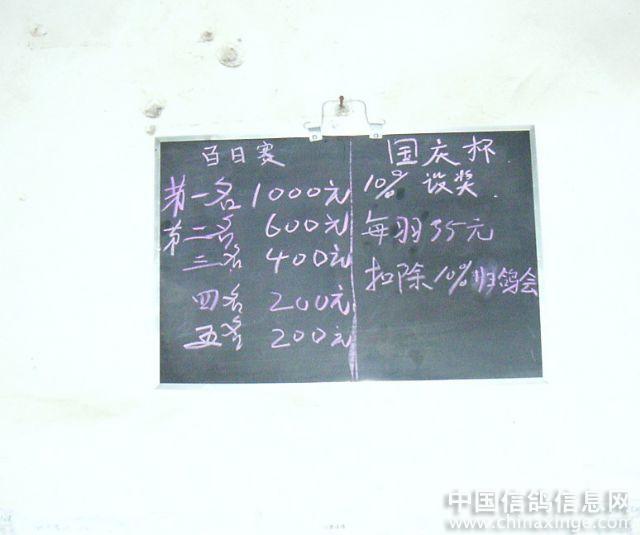 百日赛
第一名 1000元
第二名 600元
三名 400元
四名 200元
五名 200元
国庆杯
10% 设奖
每羽55元
扣除10%归鸽会
中国信鸽信息网
www.chinaxinge.com